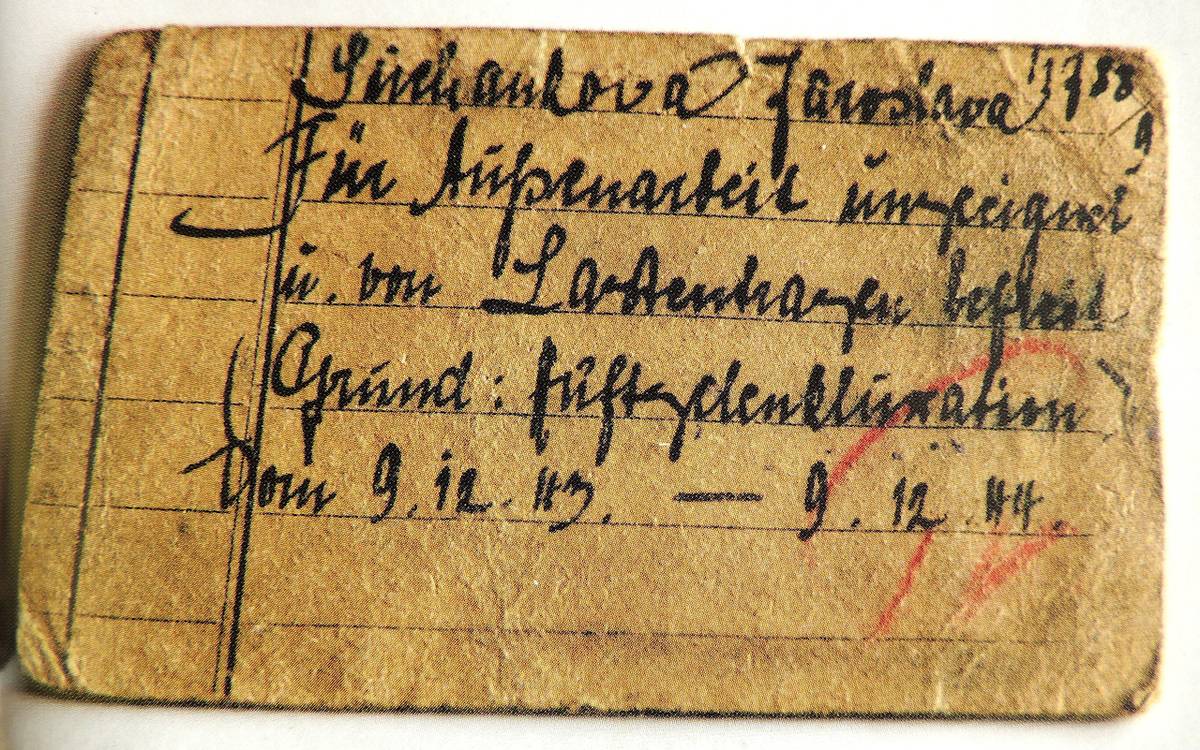 Suchankova Jaroslava 13788
Für Außenarbeit ungeeignet
u. von Lastentragen befreit
(Grund: Hüftgelenkluxation)
Vom 9.12.43. — 9.12.44.